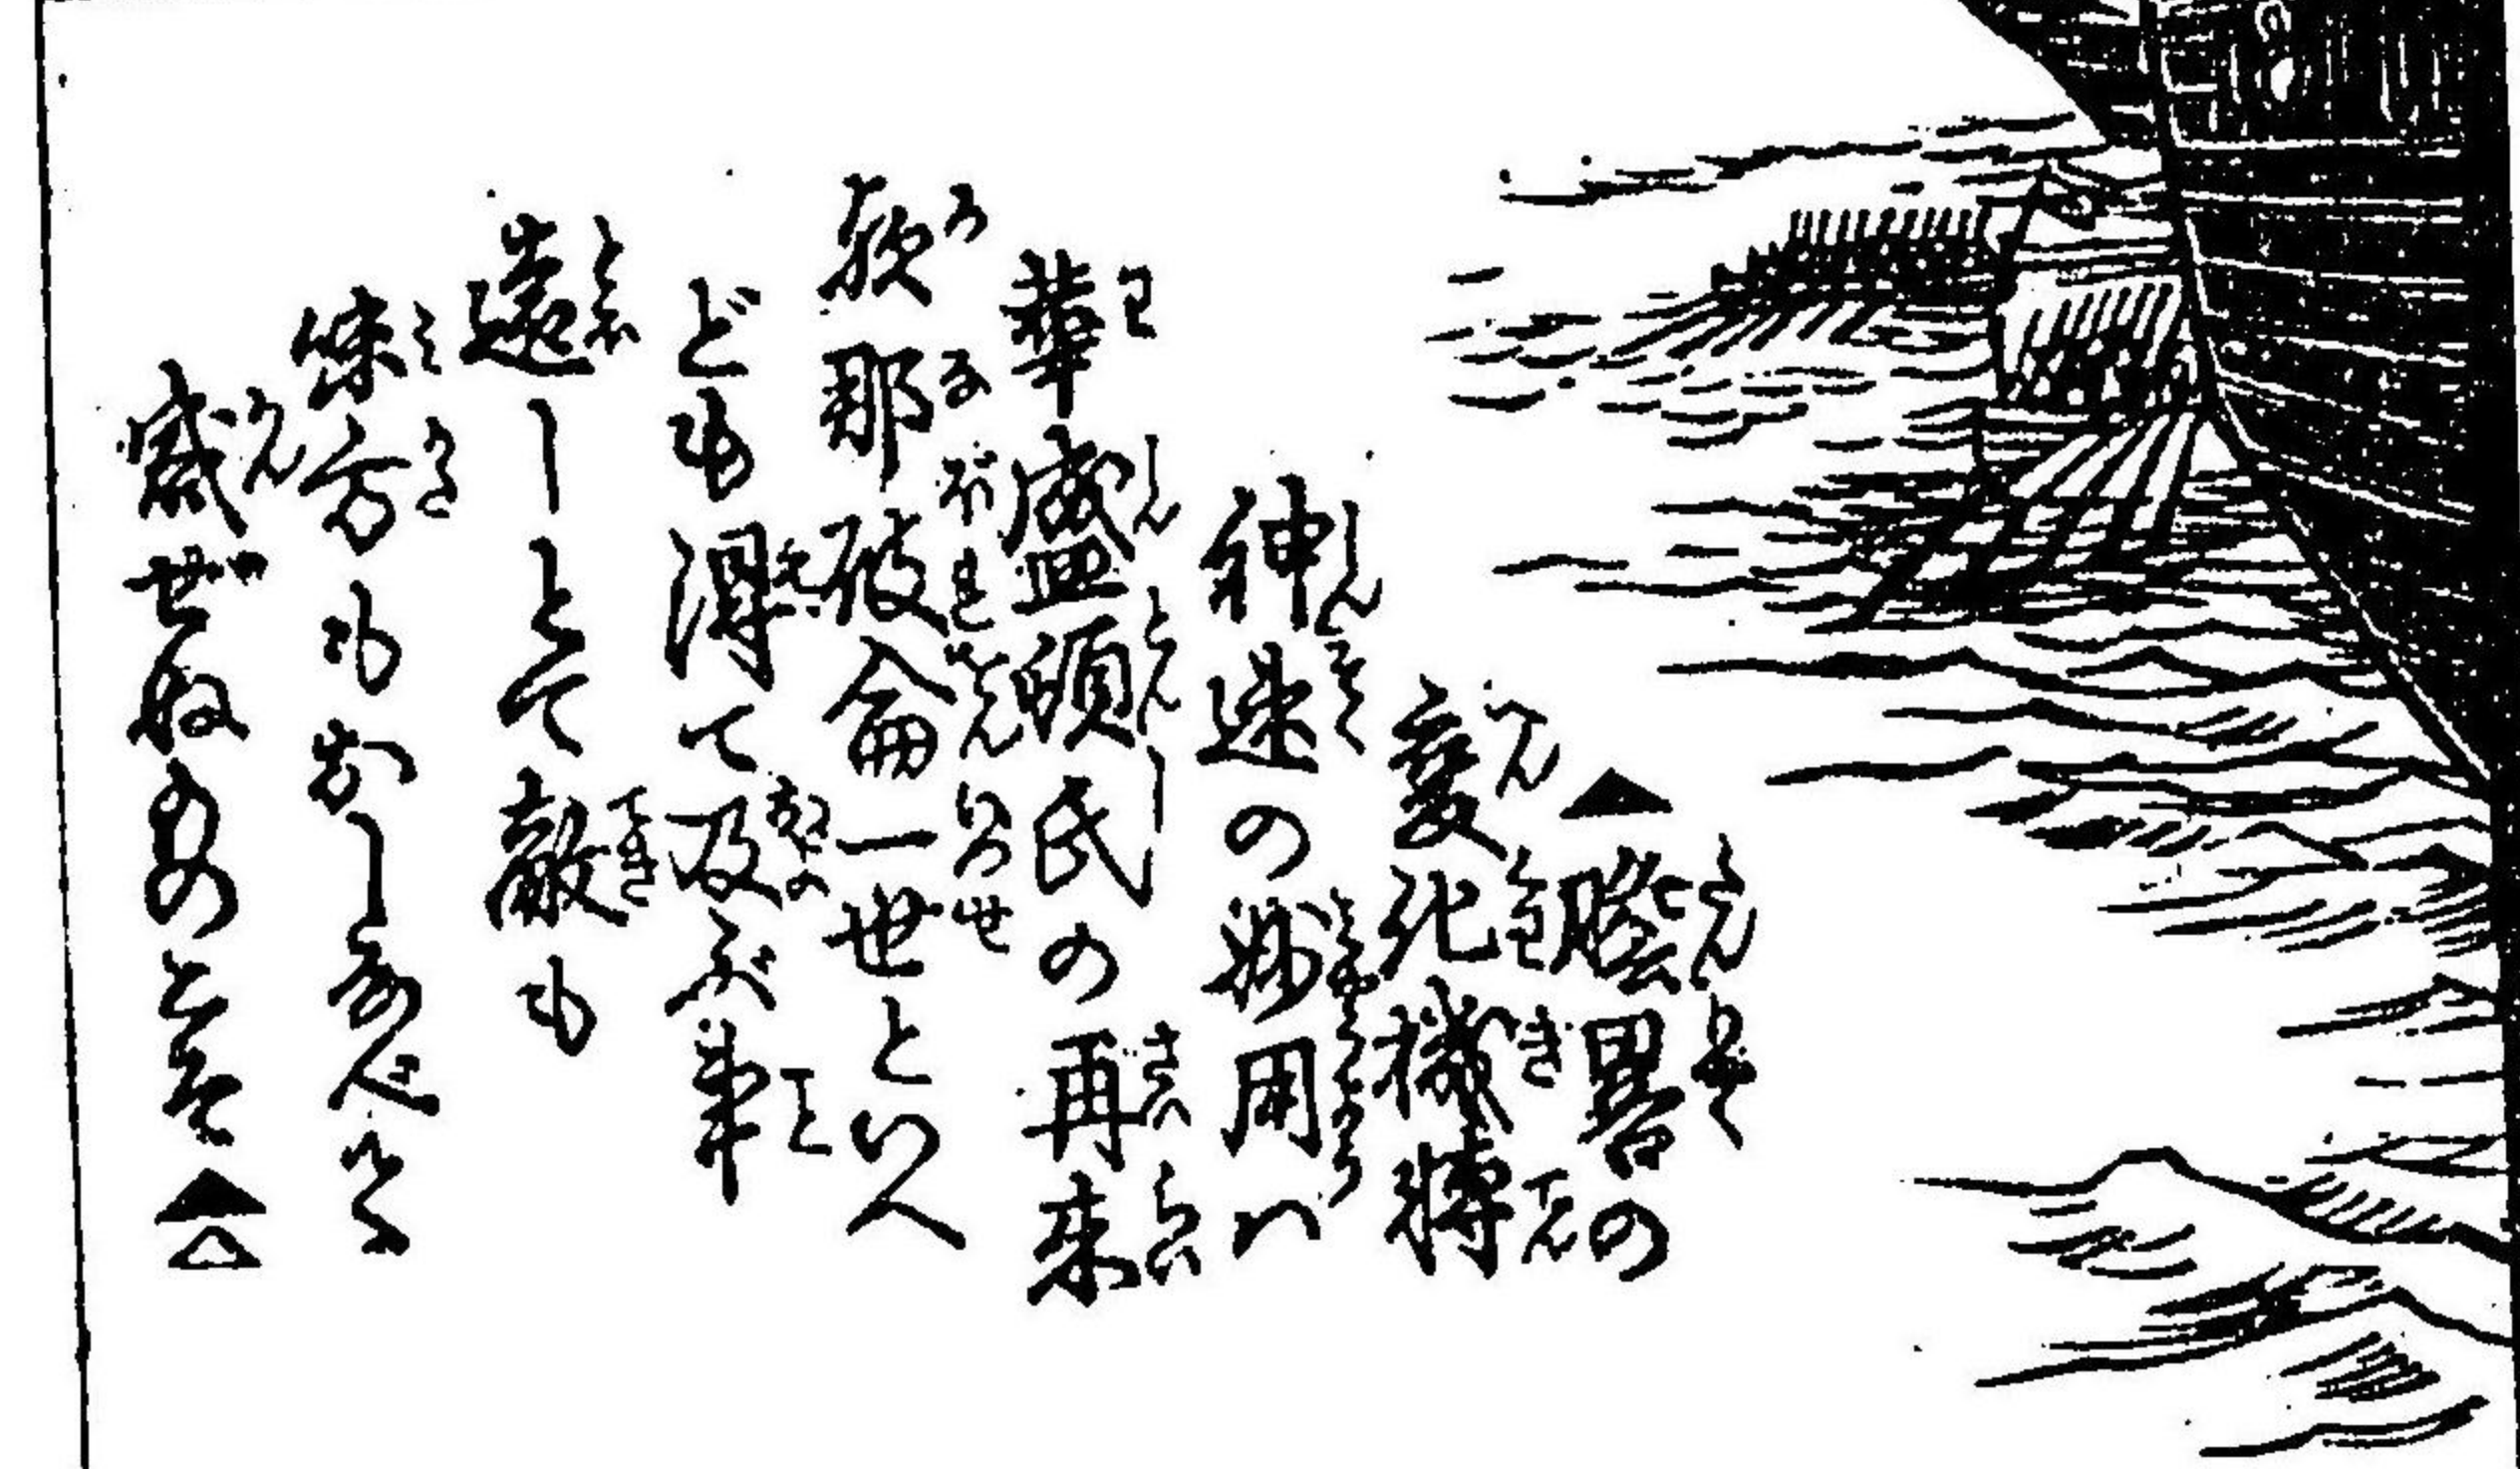 ▲膽畧の
變化機轉
神速の妙用ハ
華盛頓氏の再来
歟那破崙一世といへ
ども得て及ぶ事
遠しとて敵も
味方もおしなべて
感ぜぬものこそ▲△